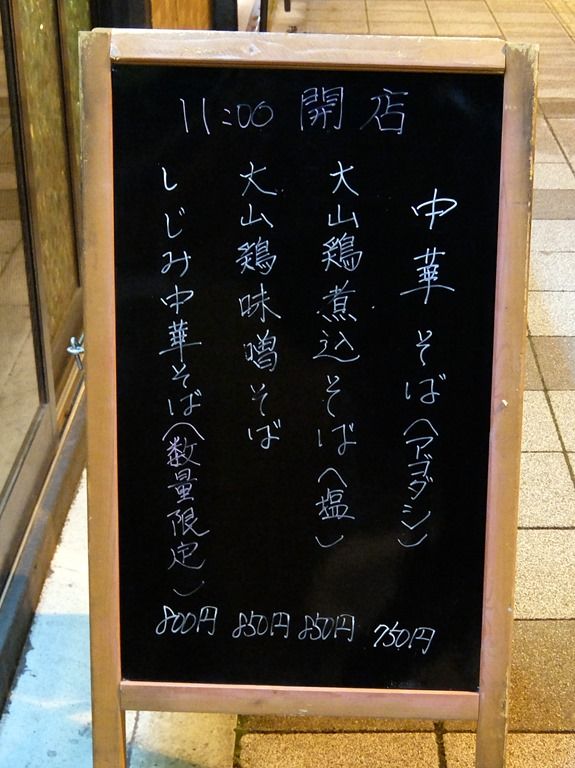 11:00 開店
中華そば(アゴダシ) 750円
大山鶏煮込そば(塩) 850円
大山鶏味噌そば 850円
しじみ中華そば(数量限定) 800円